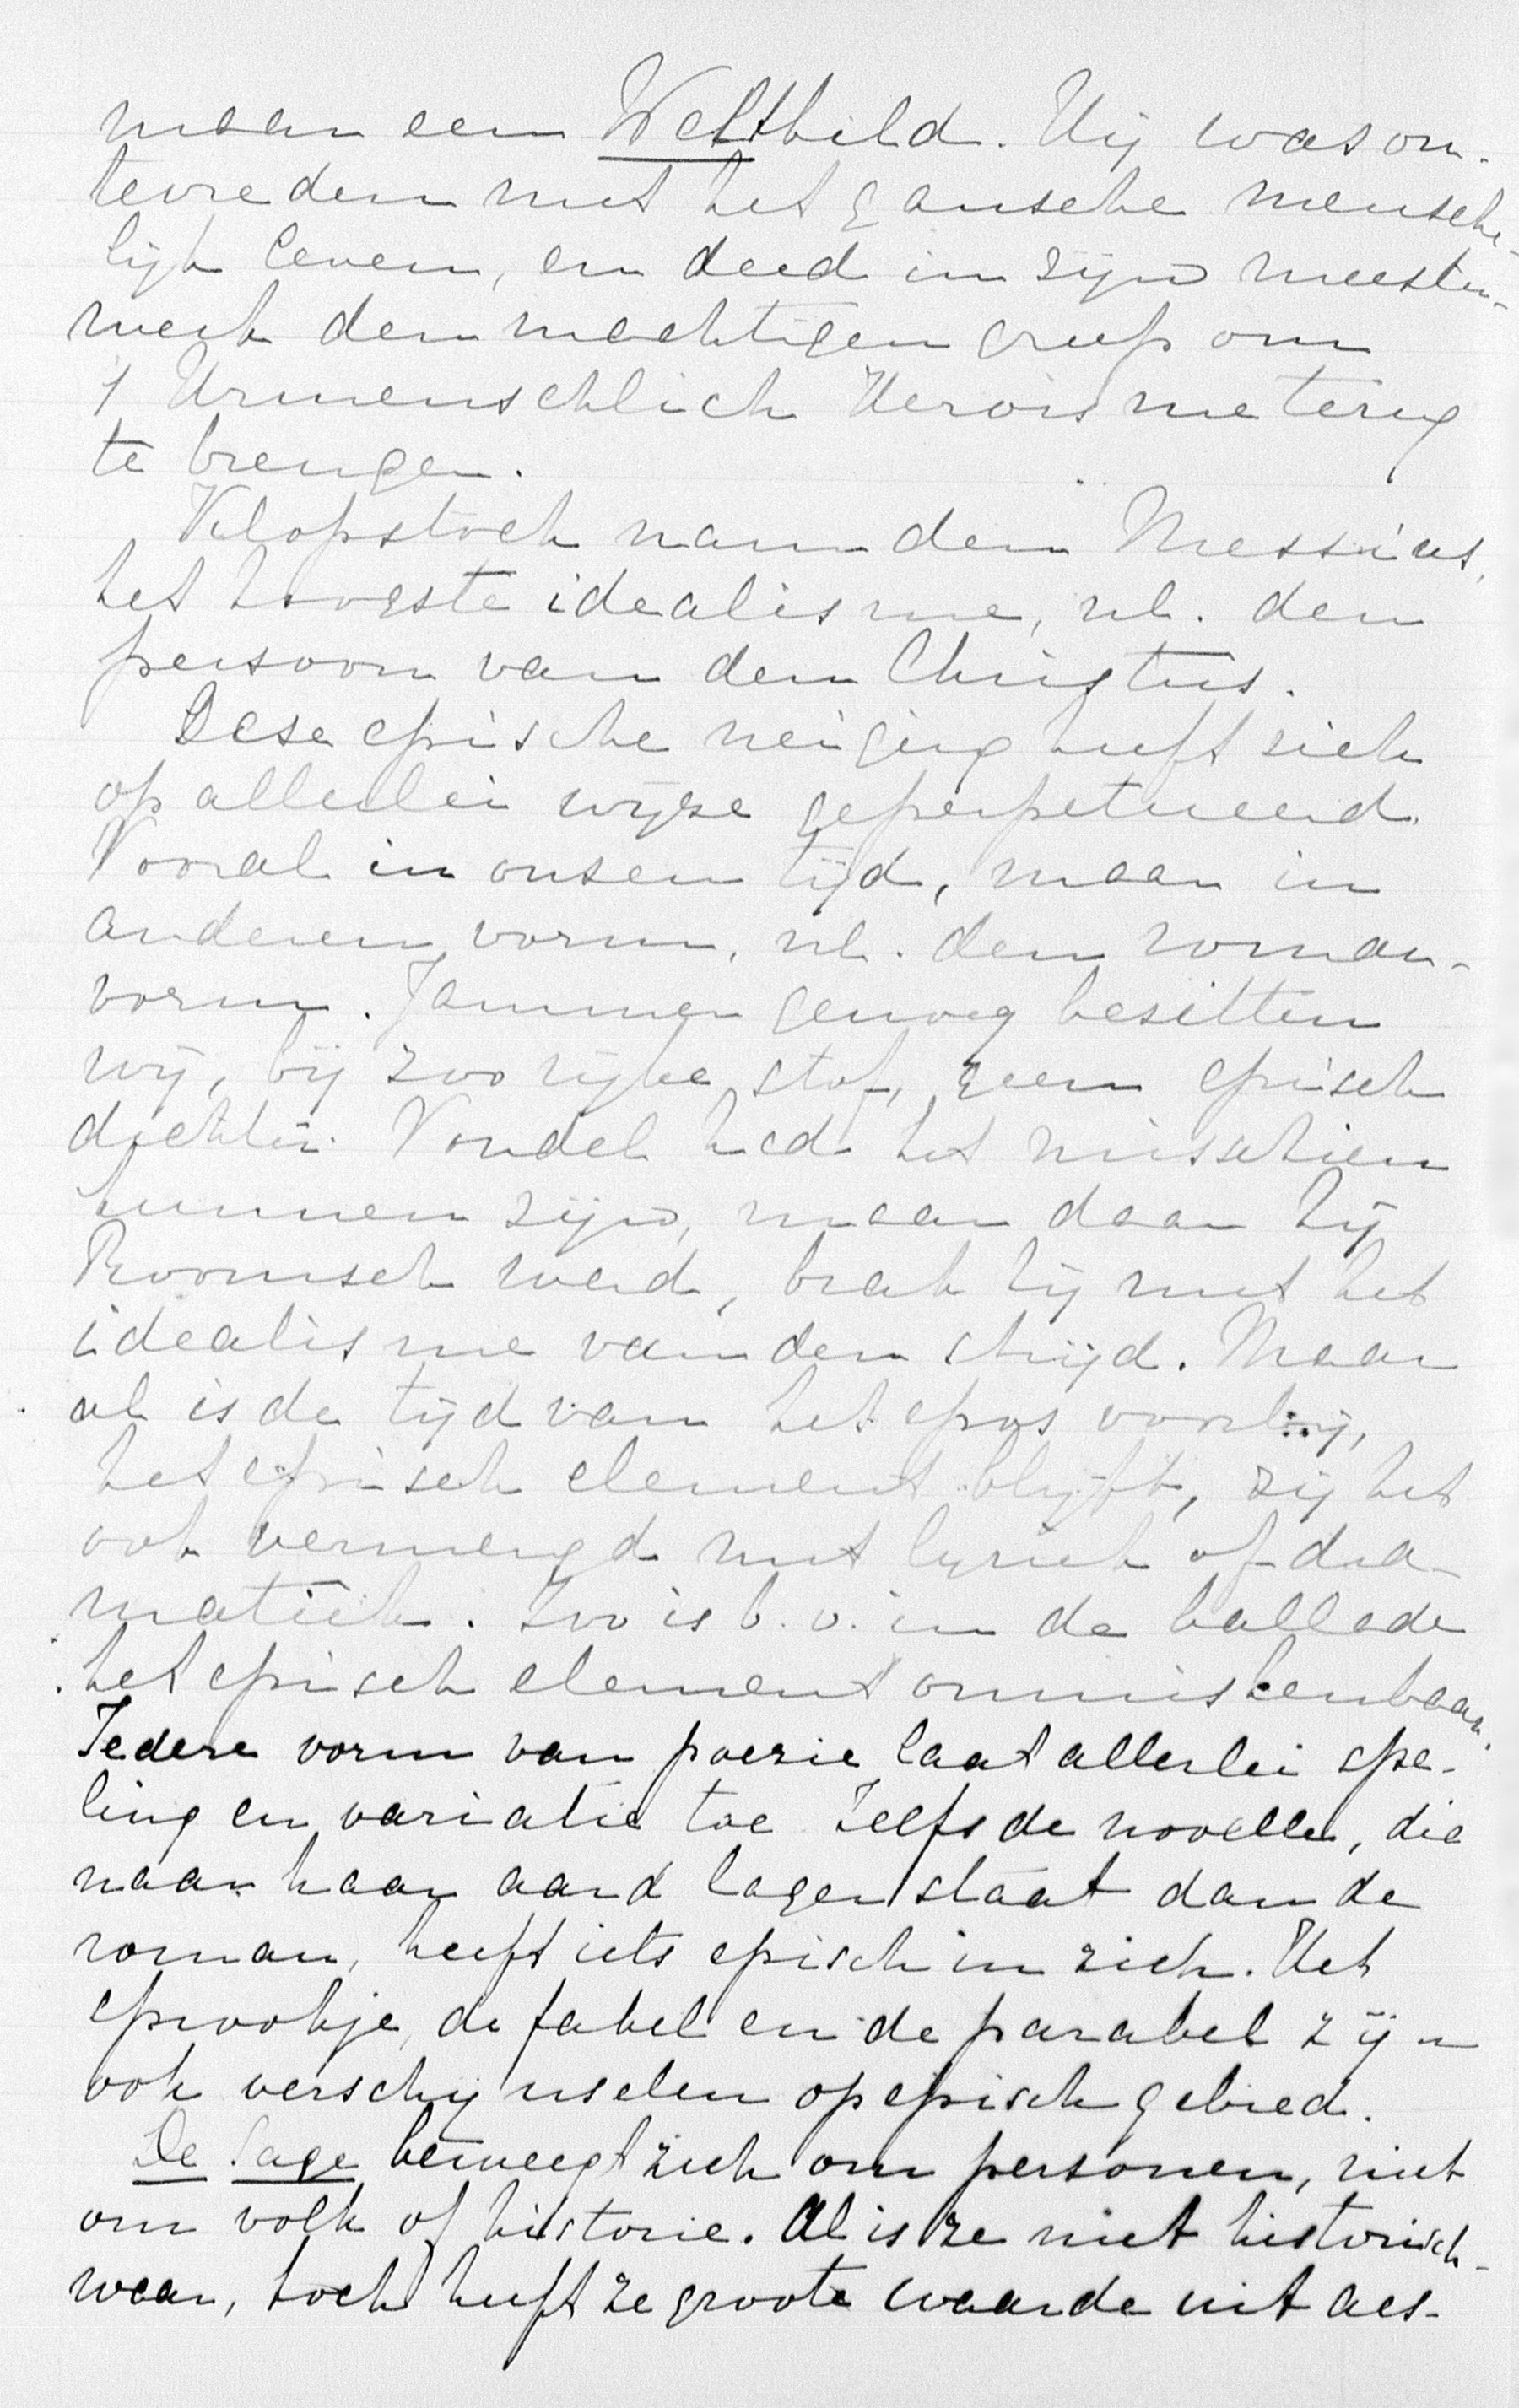 maar een Weltbild. Hij was on-
tevreden met het gansche mensche-
lijk leven, en deed in zijn meester-
werk den machtigen greep om
't Urmenschlich Heroisme terug
te brengen.
Klopstock nam den Messias,
het hoogste idealisme, nl. den
persoon van den Christus.
Deze epische neiging heeft zich
op allerlei wijze geperpetueerd.
Vooral in onzen tijd, maar in
anderen vorm, nl. den roman-
vorm. Jammer genoeg bezitten
wij, bij zoo rijke stof, geen episch
dichter. Vondel had het misschien
kunnen zijn, maar daar hij
Roomsch werd, brak hij met het
idealisme van den strijd. Maar
al is de tijd van het epos voorbij,
het episch element blijft, zij het
ook vermengd met lyriek of dra-
matiek. Zoo is b.v. in de ballade
het episch element onmiskenbaar.
Iedere vorm van poezie laat allerlei spe-
ling en variatie toe Zelfs de novelle, die
naar haar aard lager staat dan de
roman, heeft iets episch in zich. Het
sprookje, de fabel en de parabel zijn
ook verschijnselen op episch gebied.
De Sage beweegt zich om personen, niet
om volk of historie. Al is ze niet historisch-
waar, toch heeft ze groote waarde uit aes-